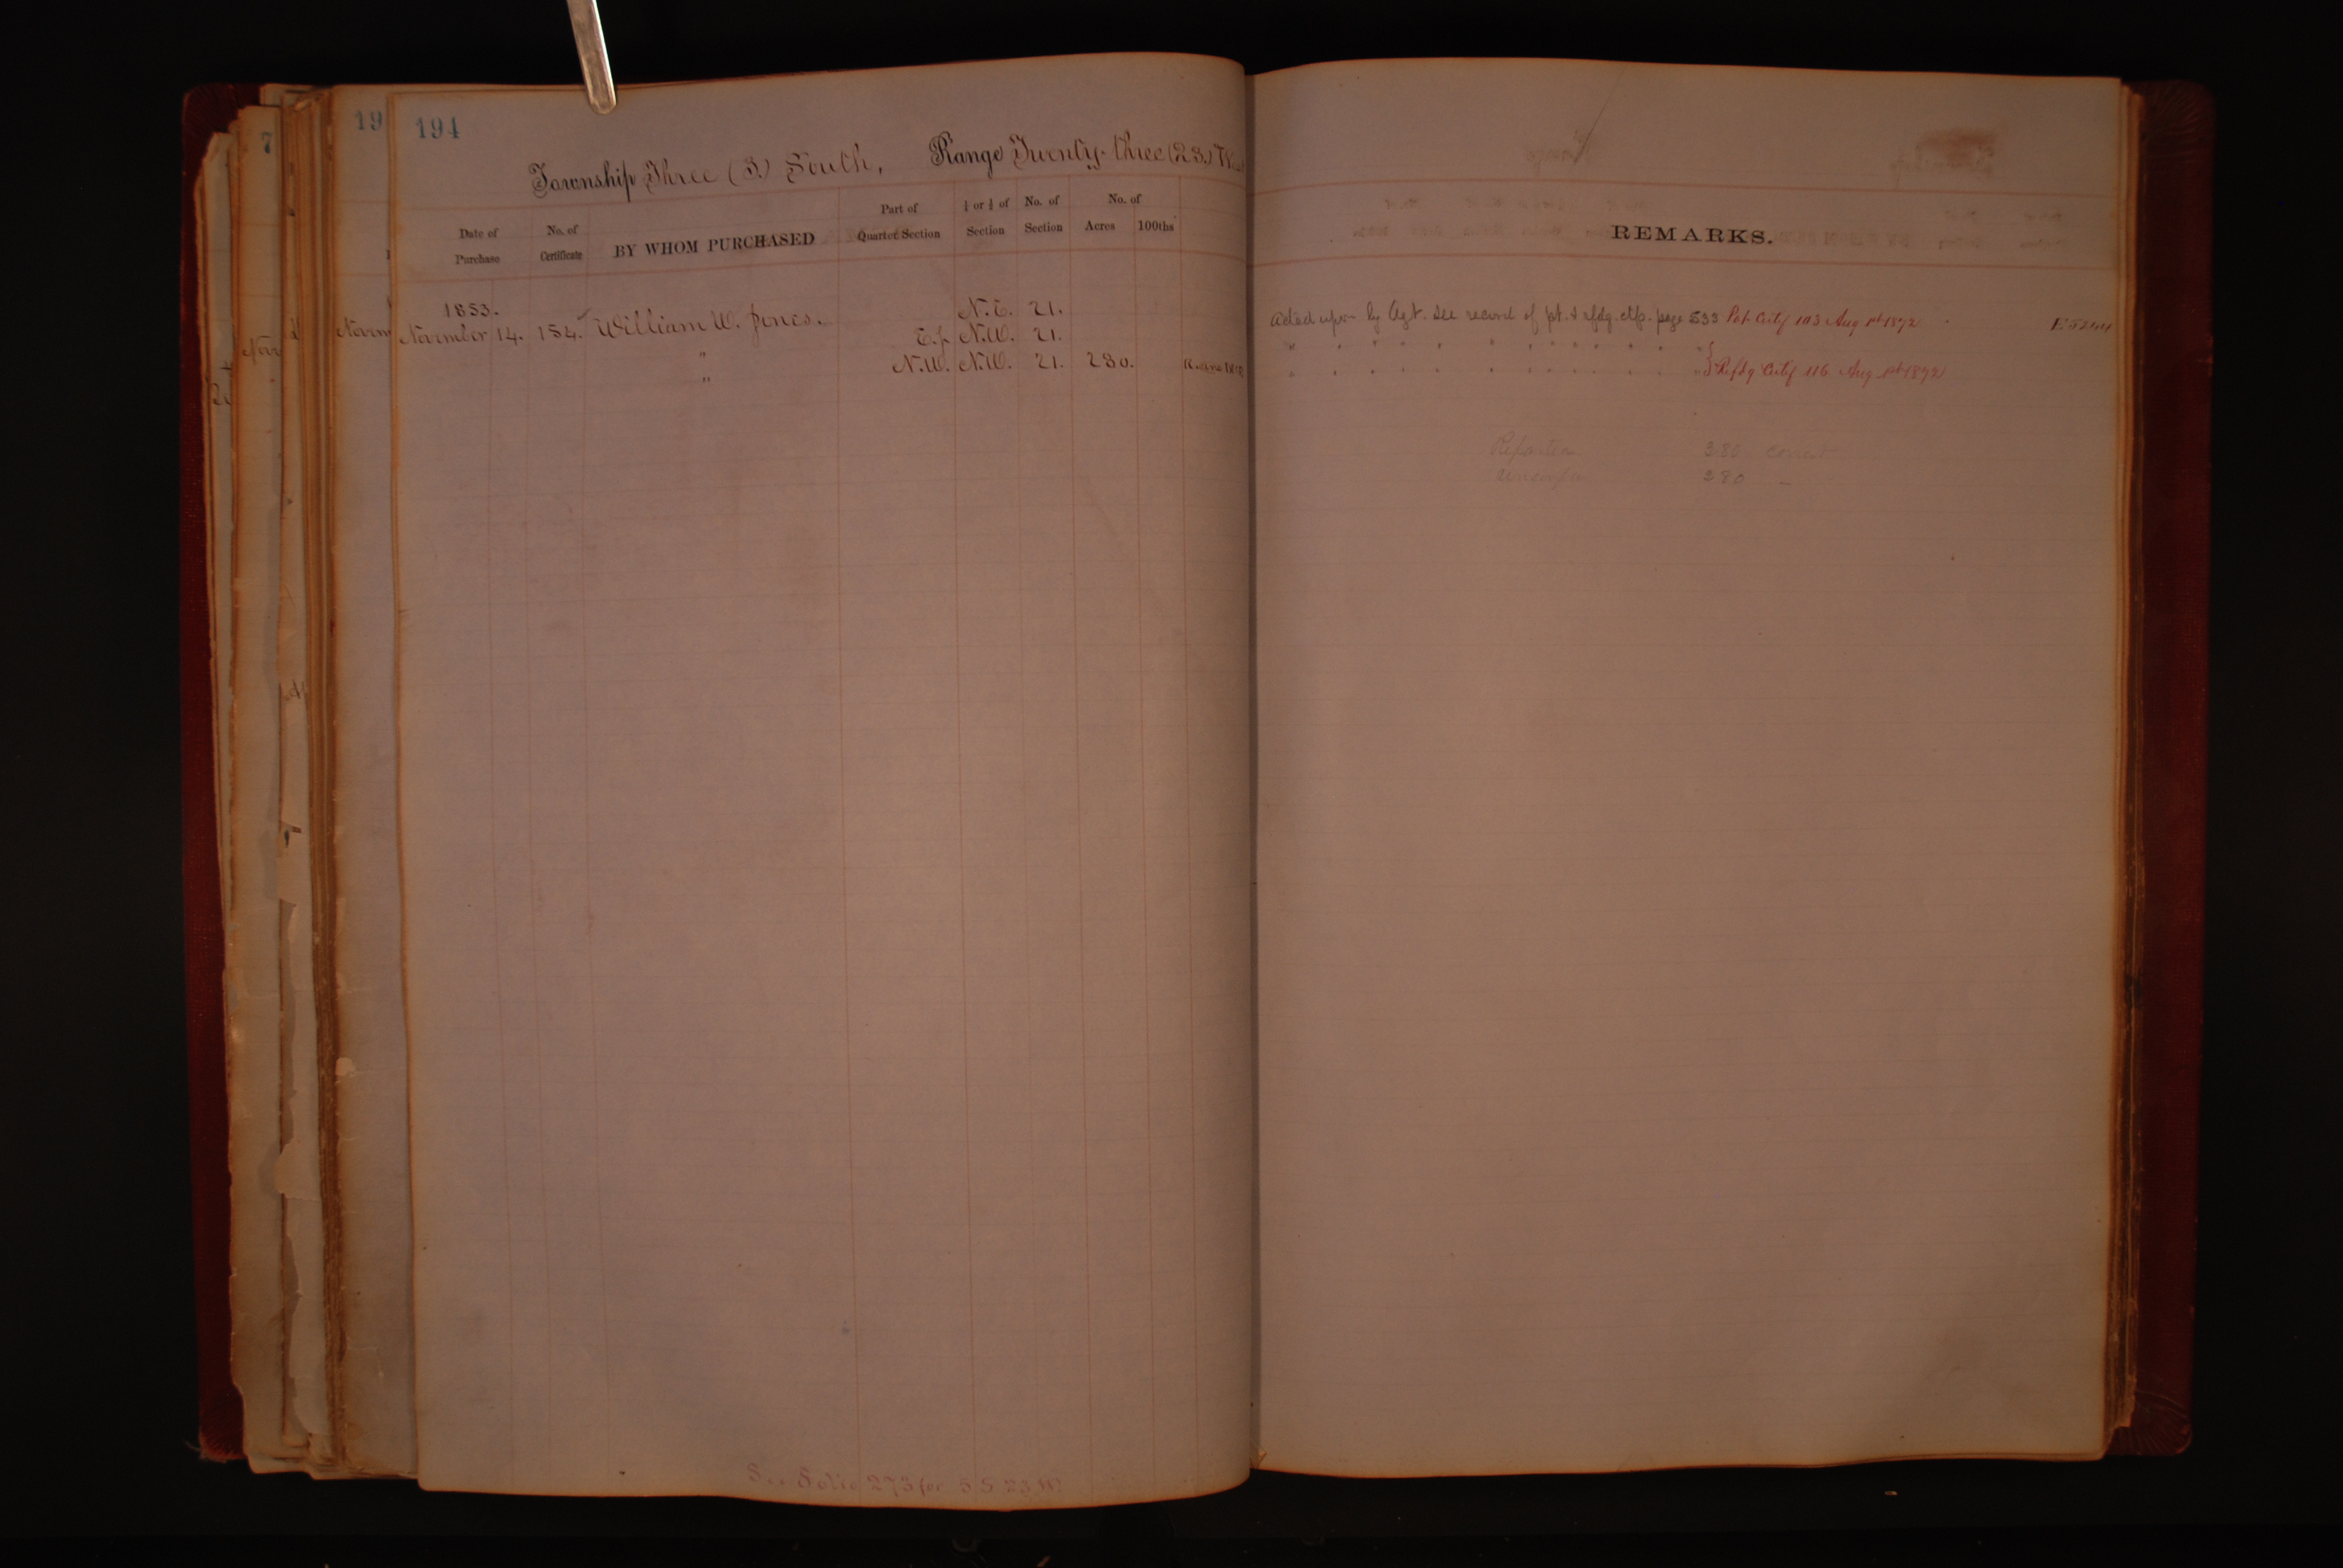 194
Township Three (3.) South, Range Twenty-three (23.) West
Date of Purchase
No. of Certificate
BY WHOM PURCHASED
Part of Quarter Section
¼ or ½ of Section
No. of Section
No. of
Acres 100ths
REMARKS.
1853.
November 14. 154. William W. Jones. N.E. 21. Acted upon by Agt. See record of pt. & rfdg. ctfs. page 533 Pat. Certf 103 Aug 1st 1892
" E.½ N.W. 21.
" N.W. N.W. 21. 280. Refdg Certf 116 Aug 1st 1892
380 correct
280 –
See Folio 273 for 5 S 23 W
19
7